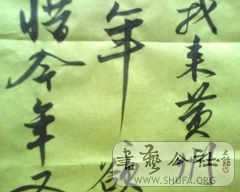 我来黄州
年
惜今年又
書藝公社
WWW.SHUFA.ORG